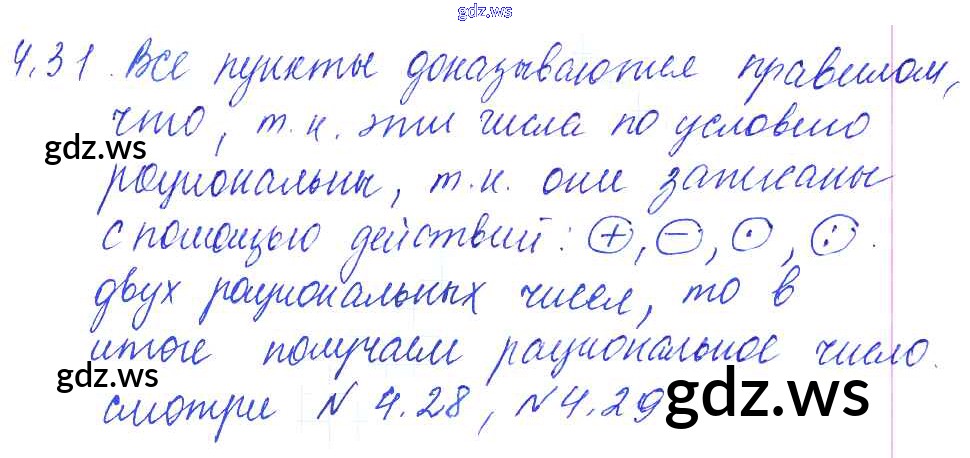 gdz.ws
4.31. Все пункты доказываются правилом,
что, т.к. эти числа по условию
gdz.ws
рациональны, т.к. они записаны
с помощью действий: +, -, ·, : .
двух рациональных чисел, то в
итоге получаем рациональное число.
gdz.ws
смотри N 4.28, N 4.29
gdz.ws